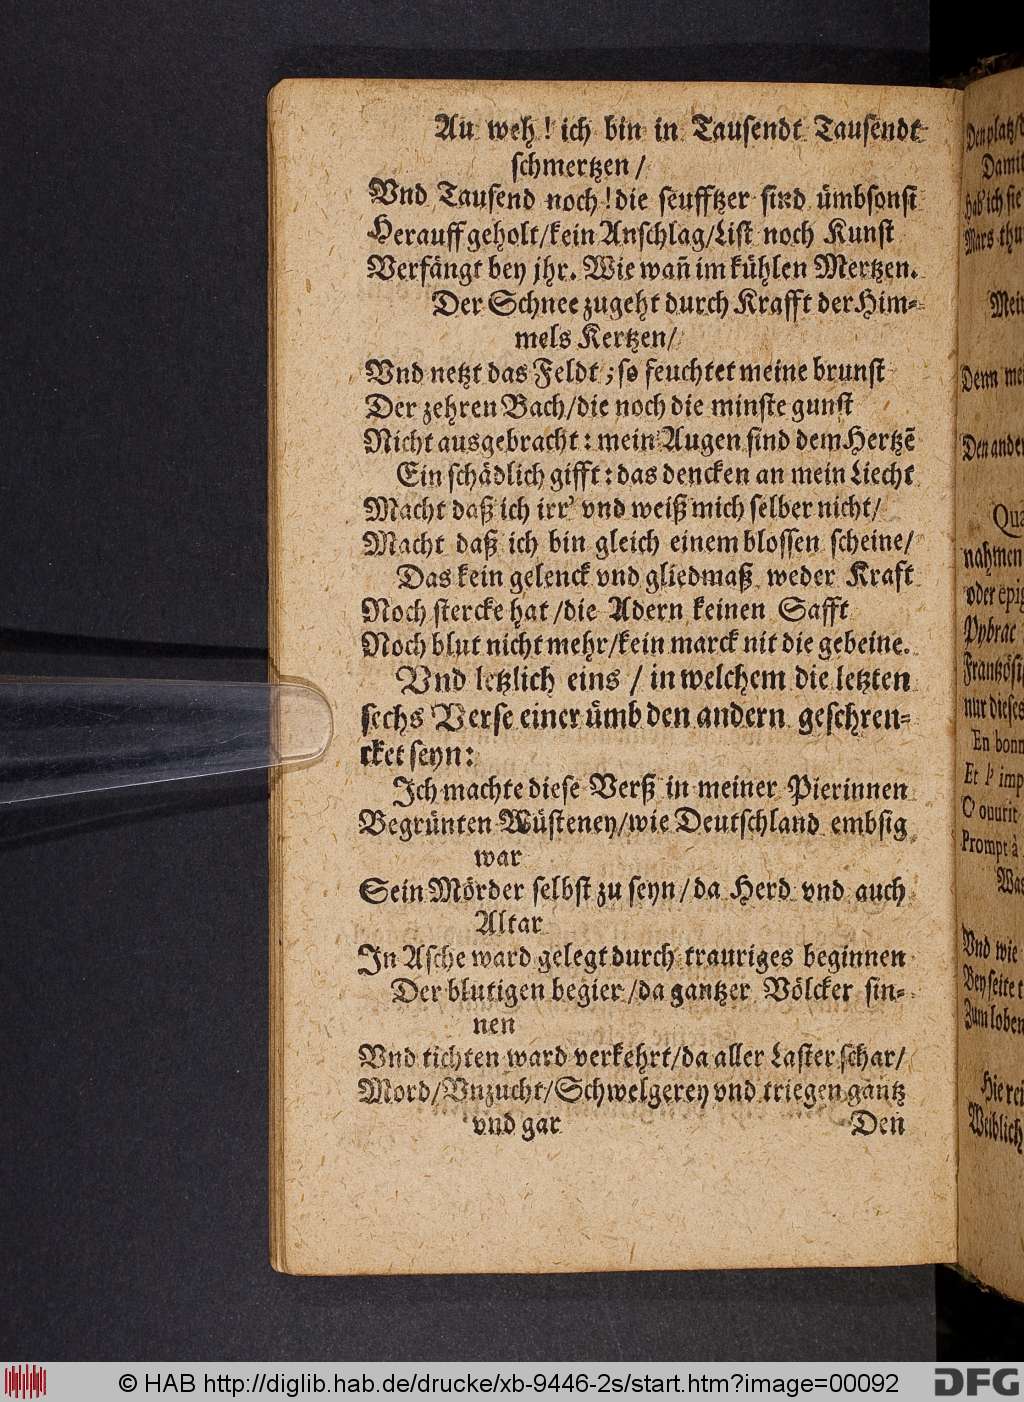 Au weh! ich bin in Tausendt Tausendt
schmertzen /
Vnd Tausend noch! die seufftzer sind ümbsonst
Herauff geholt/kein Anschlag/List noch Kunst
Verfängt bey jhr. Wie wañ im kühlen Mertzen.
Der Schnee zugeht durch Krafft der Him⸗
mels Kertzen/
Vnd netzt das Feldt; so feuchtet meine brunst
Der zehren Bach/die noch die minste gunst
Nicht ausgebracht: mein Augen sind dem Hertzẽ
Ein schädlich gifft: das dencken an mein Liecht
Macht daß ich irr’ vnd weiß mich selber nicht/
Macht daß ich bin gleich einem blossen scheine/
Das kein gelenck vnd gliedmaß weder Kraft
Noch stercke hat/die Adern keinen Safft
Noch blut nicht mehr/kein marck nit die gebeine.
Vnd letzlich eins / in welchem die letzten
sechs Verse einer ümb den andern geschren⸗
cket seyn:
Ich machte diese Verß in meiner Pierinnen
Begrünten Wüsteney/wie Deutschland embsig
war
Sein Mörder selbst zu seyn/da Herd vnd auch
Altar
In Asche ward gelegt durch trauriges beginnen
Der blutigen begier/da gantzer Völcker sin⸗
nen
Vnd tichten ward verkehrt/da aller Laster schar/
Mord/Vnzucht/Schwelgerey vnd triegen gantz
vnd gar
Den
Damit
hab' ich sie
Mars thu
Mein
Denn mei
Den ander
Qua
nahmen
oder epig
Pybrac
Frantzösis
nur dieses
En bonn
Et l' imp
C' ouurit
Prompt à
Was
Vnd wie
Bey seite t
Zum loben
Hie rei
Weiblich
© HAB http://diglib.hab.de/drucke/xb-9446-2s/start.htm?image=00092
DFG